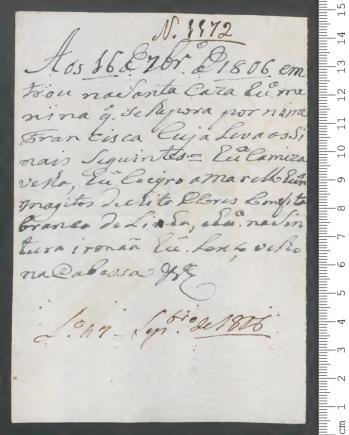 N. 1172
Aos 16 de 7br.º de 1806 em
trou na Santa Caza hu᷉a me
nina q. se Supora por nome
Francisca Cuja Leva os Si
nais Seguintes = hu᷉a Camiza
velha, hu᷉ Coeyro amarello hu᷉n
magitos de xito Flores Com fita
branca de Linho, e hu᷉ na Sin
tura hu᷉ Lenço velho
na Cabessa
L.º 47 Sept.bro de 1806